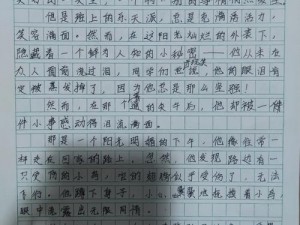 他是班上的乐天派,总是充满活力,
笑容满面。然而,在这阳光灿烂的外表下,
隐藏着一个鲜为人知的小秘密——他从未在
众人面前流过泪,同学们
定被蒸发掉了,因为他总是那么坚强!
然而,在那个 的 午后,他却被一
件小事感动得泪流满面。
那是一个阳光明媚的下午,他像往常一
样走在回家的路上,忽然,他发现路边有一
只受伤的小鸟,它的翅膀似乎受伤了,无法
飞行。他蹲下身子,小心 着小鸟,
眼中流露出无限同情。